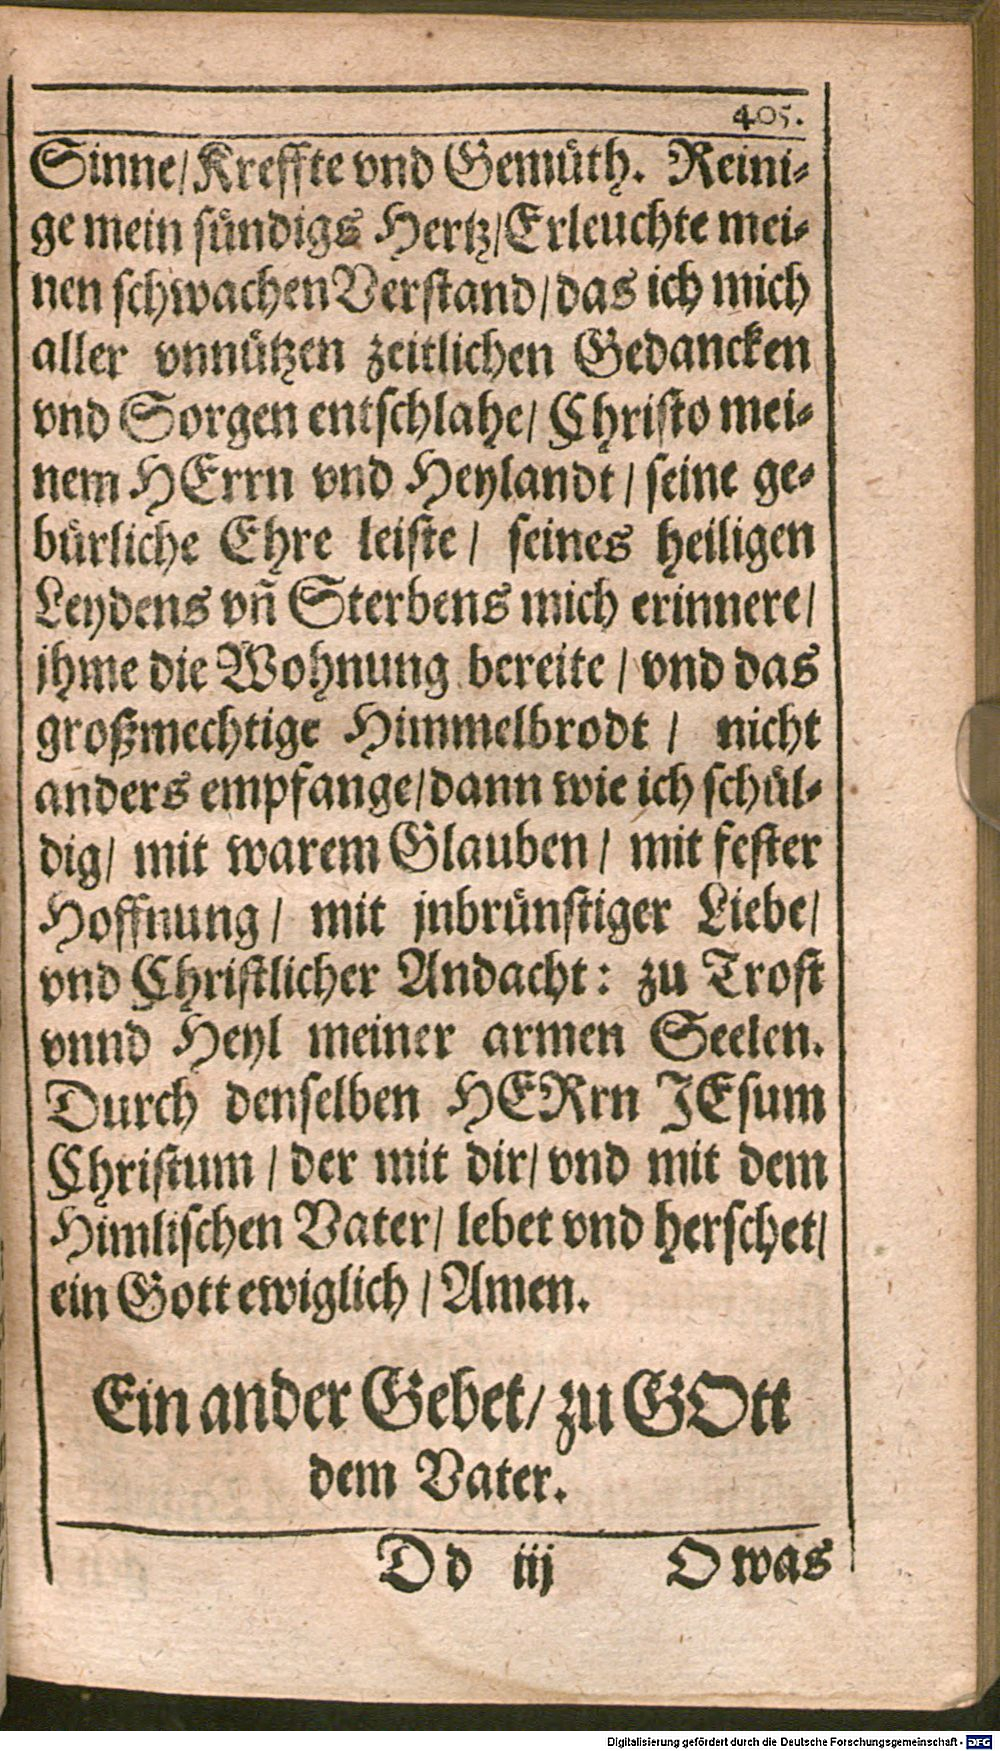 405.
Sinne/Kreffte vnd Gemüth. Reini-
ge mein sündigs Hertz/Erleuchte mei-
nen schwachen Verstand/das ich mich
aller vnnützen zeitlichen Gedancken
vnd Sorgen entschlahe/ Christo mei-
nem HErrn vnd Heylandt/ seine ge-
bürliche Ehre leiste/ seines heiligen
Leydens vñ Sterbens mich erinnere/
jhme die Wohnung bereite/ vnd das
großmechtige Himmelbrodt/ nicht
anders empfange/dann wie ich schül-
dig/ mit warem Glauben/ mit fester
Hoffnung/ mit jnbrünstiger Liebe/
vnd Christlicher Andacht: zu Trost
vnnd Heyl meiner armen Seelen.
Durch denselben HERrn JEsum
Christum/ der mit dir/ vnd mit dem
Himlischen Vater/ lebet vnd herschet/
ein Gott ewiglich/ Amen.
Ein ander Gebet/ zu GOtt
dem Vater.
Dd iij O was
Digitalisierung gefördert durch die Deutsche Forschungsgemeinschaft - DFG